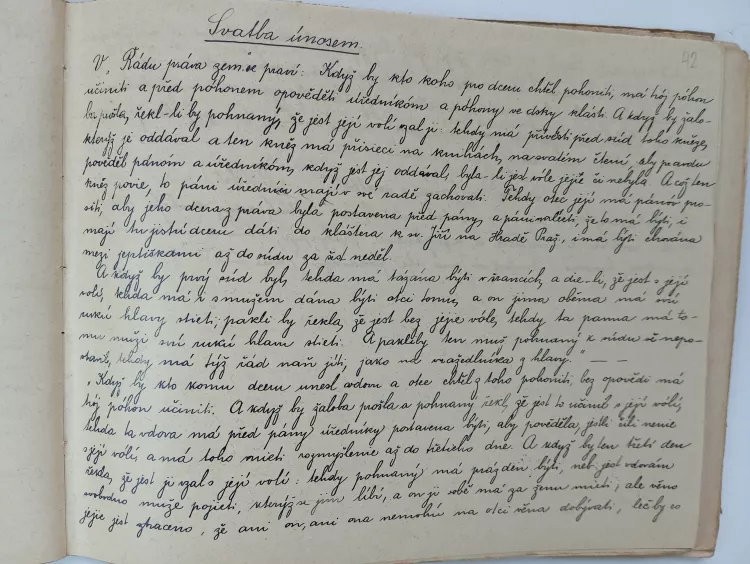 42
Svatba únosem.
V „Řádu práva zem." se praví: Když by kto koho pro dceru chtěl pohoniti, má trój póhon
učiniti a před póhonem opověděti úředníkóm a póhony ve dsky klásti. A když by žalo-
ba prošla, řekl-li by pohnaný, že jest její volí vzal ji: tehdy má přivésti před súd toho kněze,
kterýž je oddával a ten kněz má přisieci na knihách, na svatém čtení, aby pravdu
pověděl pánom a úředníkóm, když jest jej oddával, byla-li jest vóle jejie či nebyla. A což ten
kněz povie, to páni úředníci mají v své radě zachovati. Tehdy otec její má pánóv pro-
siti, aby jeho dcera z práva byla postavena před pány, a páni válečti, že to má býti, i
mají tu jistú dceru dáti do kláštera k sv. Jiří na Hradě Praž., i má býti chována
mezi jeptiškami až do súdu za šest neděl.
A když by prvý súd byl, tehda má tázána býti v šrancích, a die-li, že jest s její
volí, tehda má i s mužem dána býti otci tomu, a on jima oběma má svú
rukú hlavy stieti; pakli by řekla, že jest bez jejie vóle, tehdy ta panna má to-
mu muži svú rukú hlavu stieti. A pakli by ten muž pohnaný k súdu sě nepo-
stavil, tehdy má týž řád naň jíti, jako na vražedlníka z hlavy." — —
„Když by kto komu dceru unesl vdovu a otec chtěl z toho pohoniti, bez opovědi má
trój póhon učiniti. A když by žaloba prošla a pohnaný řekl, že jest to učinil s její volí,
tehda ta vdova má před pány úředníky postavena býti, aby pověděla, jestli čili nenie
s její volí, a má toho mieti rozmyšlenie až do třetieho dne. A když by ten třetí den
řekla, že jest ji vzal s její volí: tehdy pohnaný má prázden býti, neb jest vdovám
svobodno muže pojieti, kterýž se jim líbí, a on ji sobě má za ženu mieti; ale věno
jejie jest ztraceno, že ani on, ani ona nemohú na otci věna dobývati, leč by co